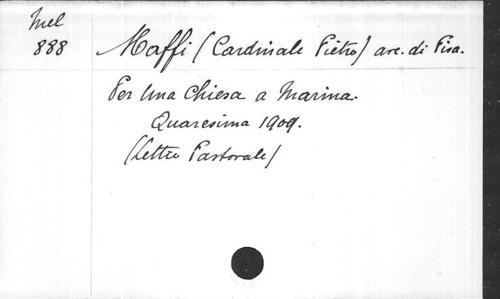 Mel
888
Maffi (Cardinale Pietro) arc. di Pisa.
Per Una Chiesa a Marina.
Quaresima 1909.
(Lettre Pastorale)